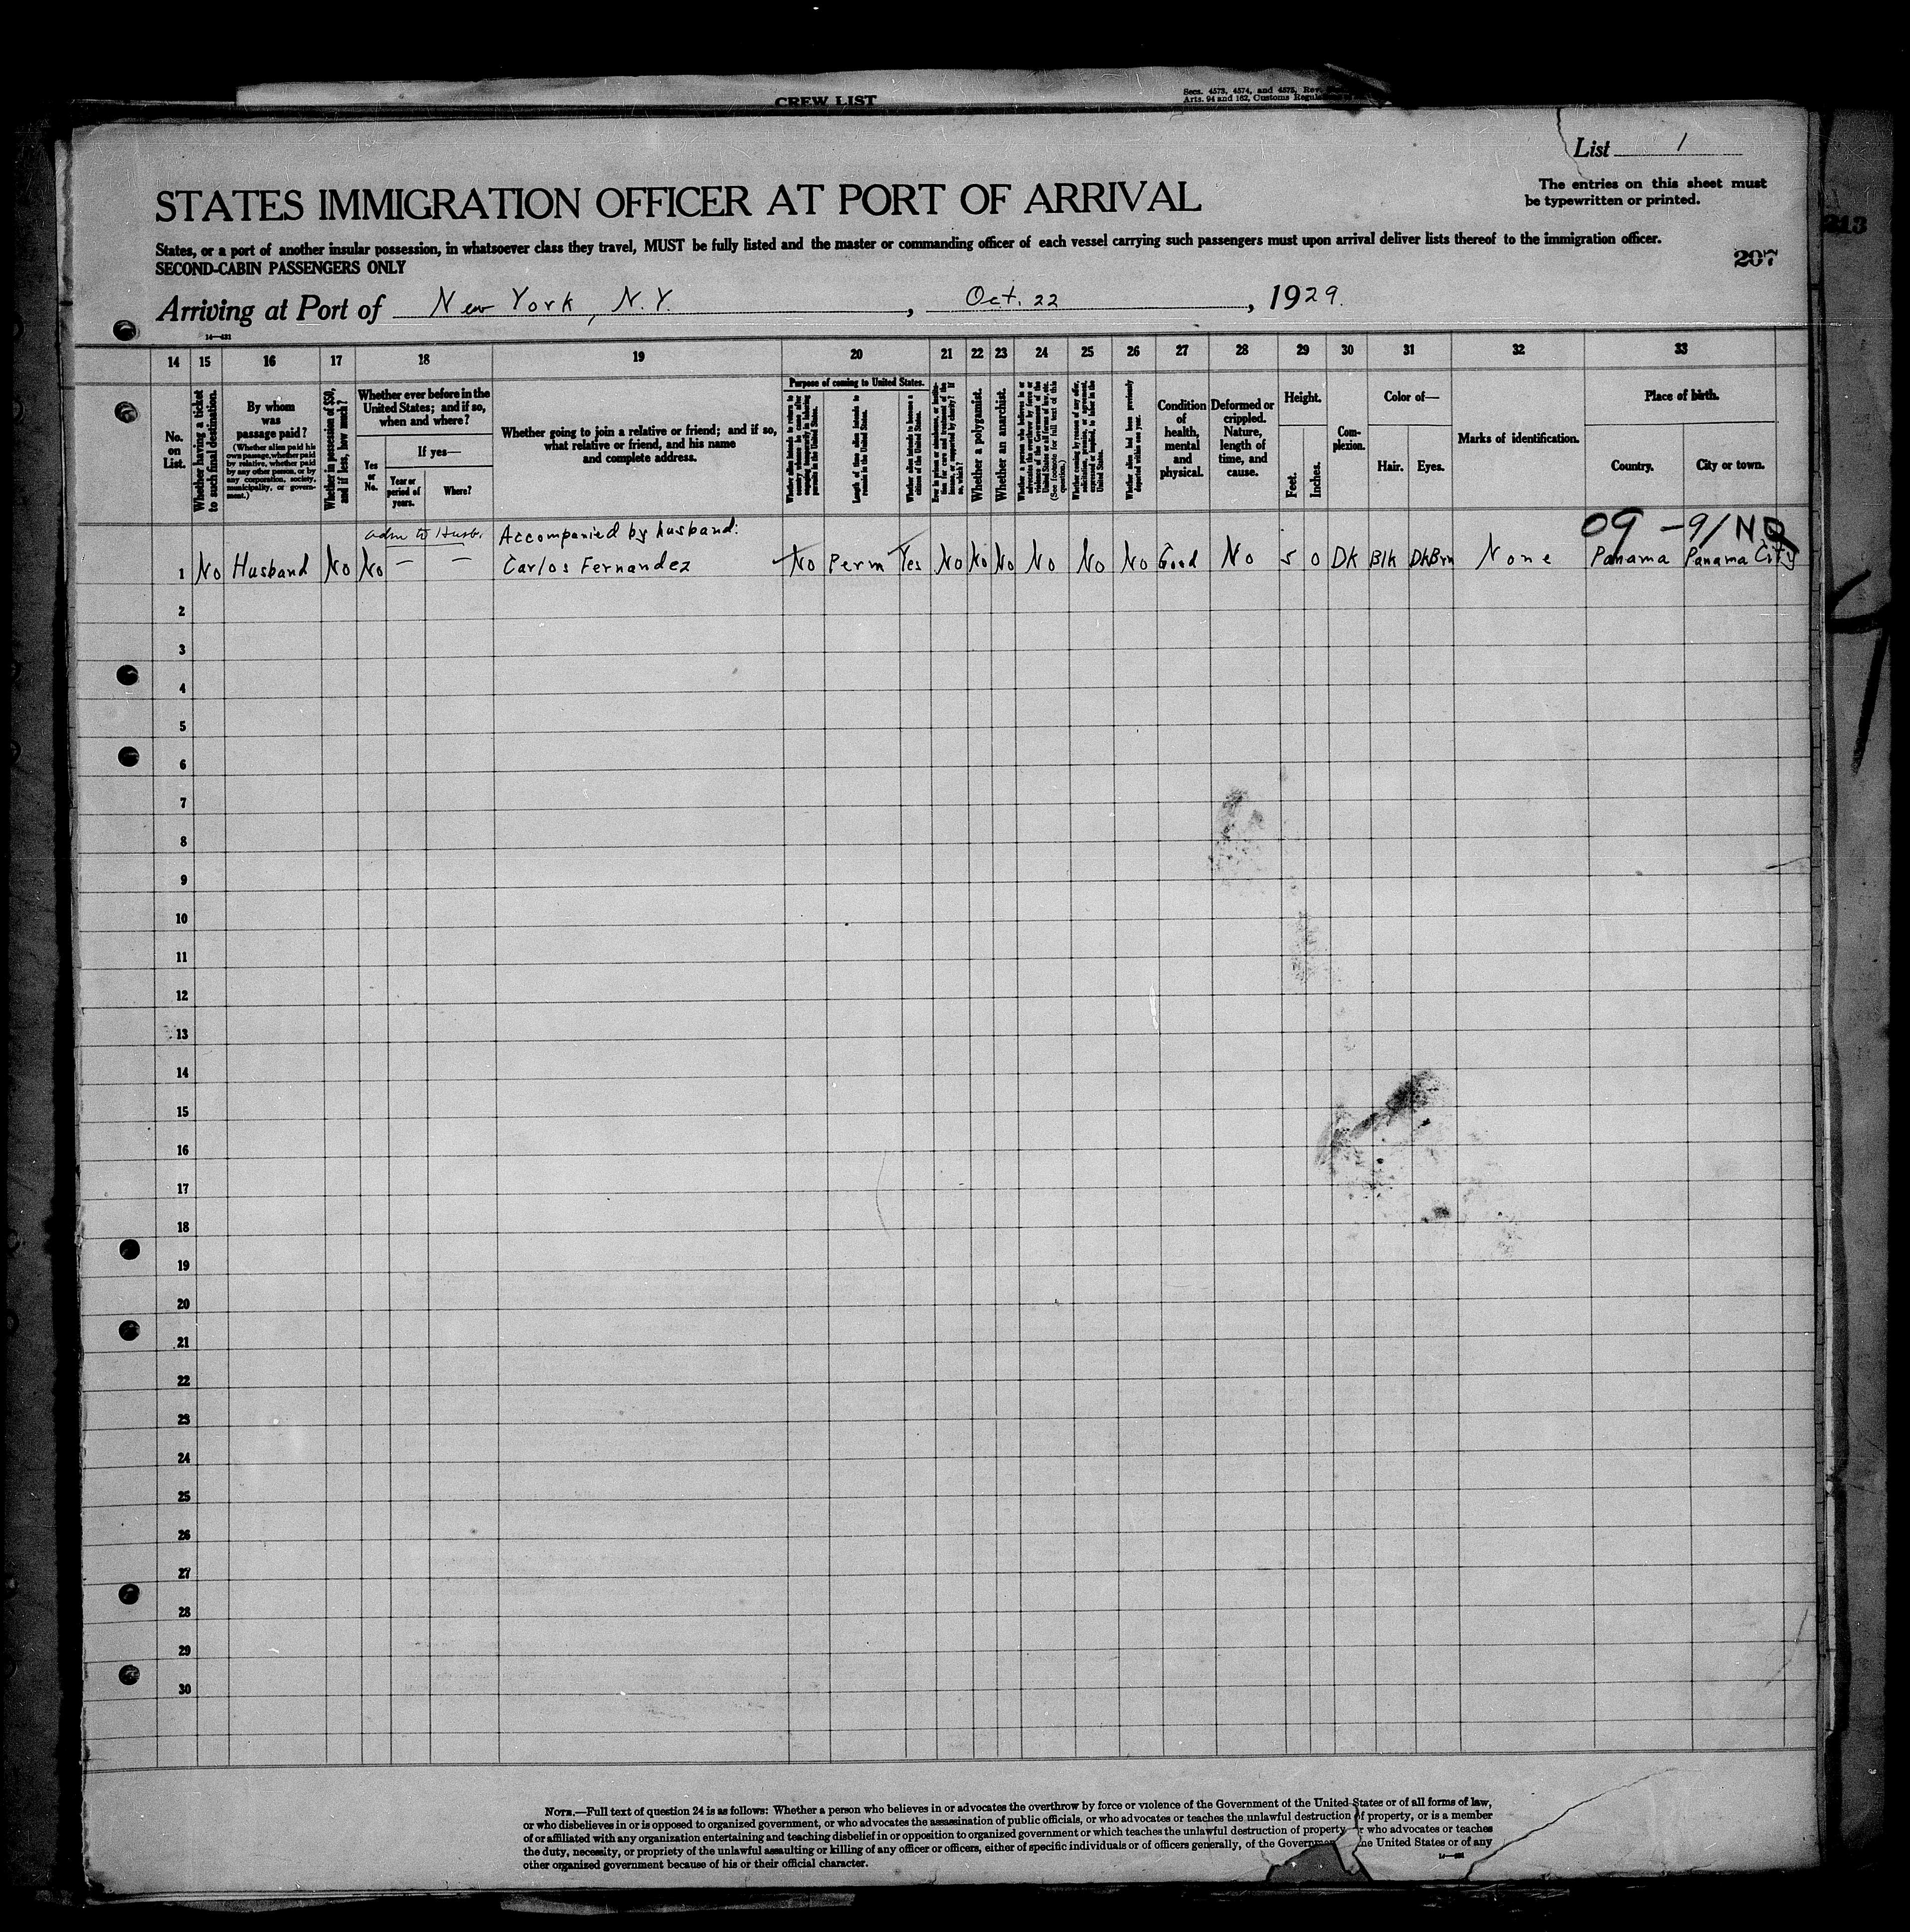 CREW LIST
Secs. 4573, 4574, and 4575, Rev.
Arts. 94 and 162, Customs
List 1
STATES IMMIGRATION OFFICER AT PORT OF ARRIVAL
The entries on this sheet must
be typewritten or printed.
213
States, or a port of another insular possession, in whatsoever class they travel, MUST be fully listed and the master or commanding officer of each vessel carrying such passengers must upon arrival deliver lists thereof to the immigration officer.
SECOND-CABIN PASSENGERS ONLY
207
Arriving at Port of New York, N.Y., Oct. 22, 1929.
14 15 16 17 18 19 20 21 22 23 24 25 26 27 28 29 30 31 32 33
No. on List.
Whether having a ticket to such final destination.
By whom was passage paid?
(Whether alien paid his own passage, whether paid by relative, whether paid by any other person, or by any corporation, society, municipality, or government.)
Whether in possession of $50, and if less, how much?
Whether ever before in the United States; and if so, when and where?
Yes or No.
If yes—
Year or period of years.
Where?
Whether going to join a relative or friend; and if so, what relative or friend, and his name and complete address.
Purpose of coming to United States.
Length of time alien intends to remain in the United States.
Whether alien intends to become a citizen of the United States.
Whether a polygamist.
Whether an anarchist.
Whether alien had been previously deported within one year.
Condition of health, mental and physical.
Deformed or crippled. Nature, length of time, and cause.
Height.
Feet.
Inches.
Complexion.
Color of—
Hair.
Eyes.
Marks of identification.
Place of birth.
Country.
City or town.
adm to Husb.
Accompanied by husband:
09 -9/NQ
1 No Husband No No — — Carlos Fernandez No Perm Yes No No No No No No Good No 5 0 Dk Blk DkBrn None Panama Panama City
2
3
4
5
6
7
8
9
10
11
12
13
14
15
16
17
18
19
20
21
22
23
24
25
26
27
28
29
30
NOTE.—Full text of question 24 is as follows: Whether a person who believes in or advocates the overthrow by force or violence of the Government of the United States or of all forms of law,
or who disbelieves in or is opposed to organized government, or who advocates the assassination of public officials, or who advocates or teaches the unlawful destruction of property, or is a member
of or affiliated with any organization entertaining and teaching disbelief in or opposition to organized government or which teaches the unlawful destruction of property or who advocates or teaches
the duty, necessity, or propriety of the unlawful assaulting or killing of any officer or officers, either of specific individuals or of officers generally, of the Government the United States or of any
other organized government because of his or their official character.